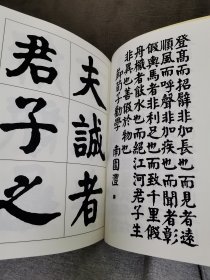 登高而招臂非加長也而見者遠
順風而呼聲非加疾也而聞者彰
假輿馬者非利足也而致千里假
舟檝者非能水也而絕江河君子生
非異也善假於物也
節荀子勸學 南園
夫誠者
君子之